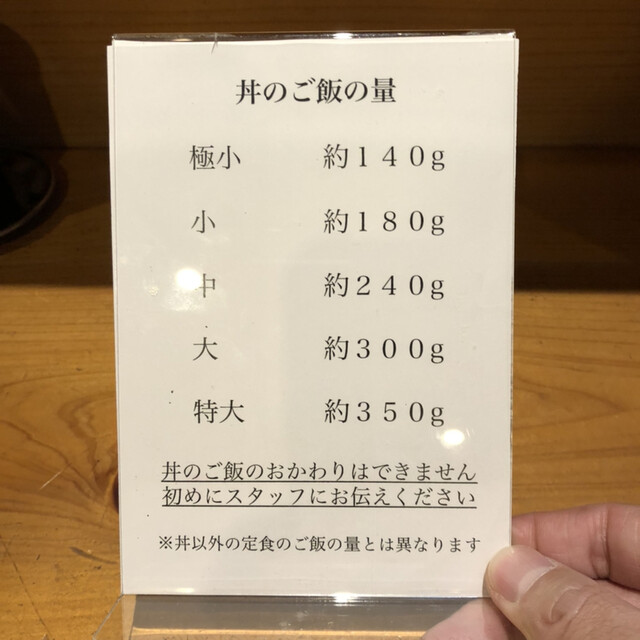 丼のご飯の量
極小 約１４０g
小 約１８０g
中 約２４０g
大 約３００g
特大 約３５０g
丼のご飯のおかわりはできません
初めにスタッフにお伝えください
※丼以外の定食のご飯の量とは異なります